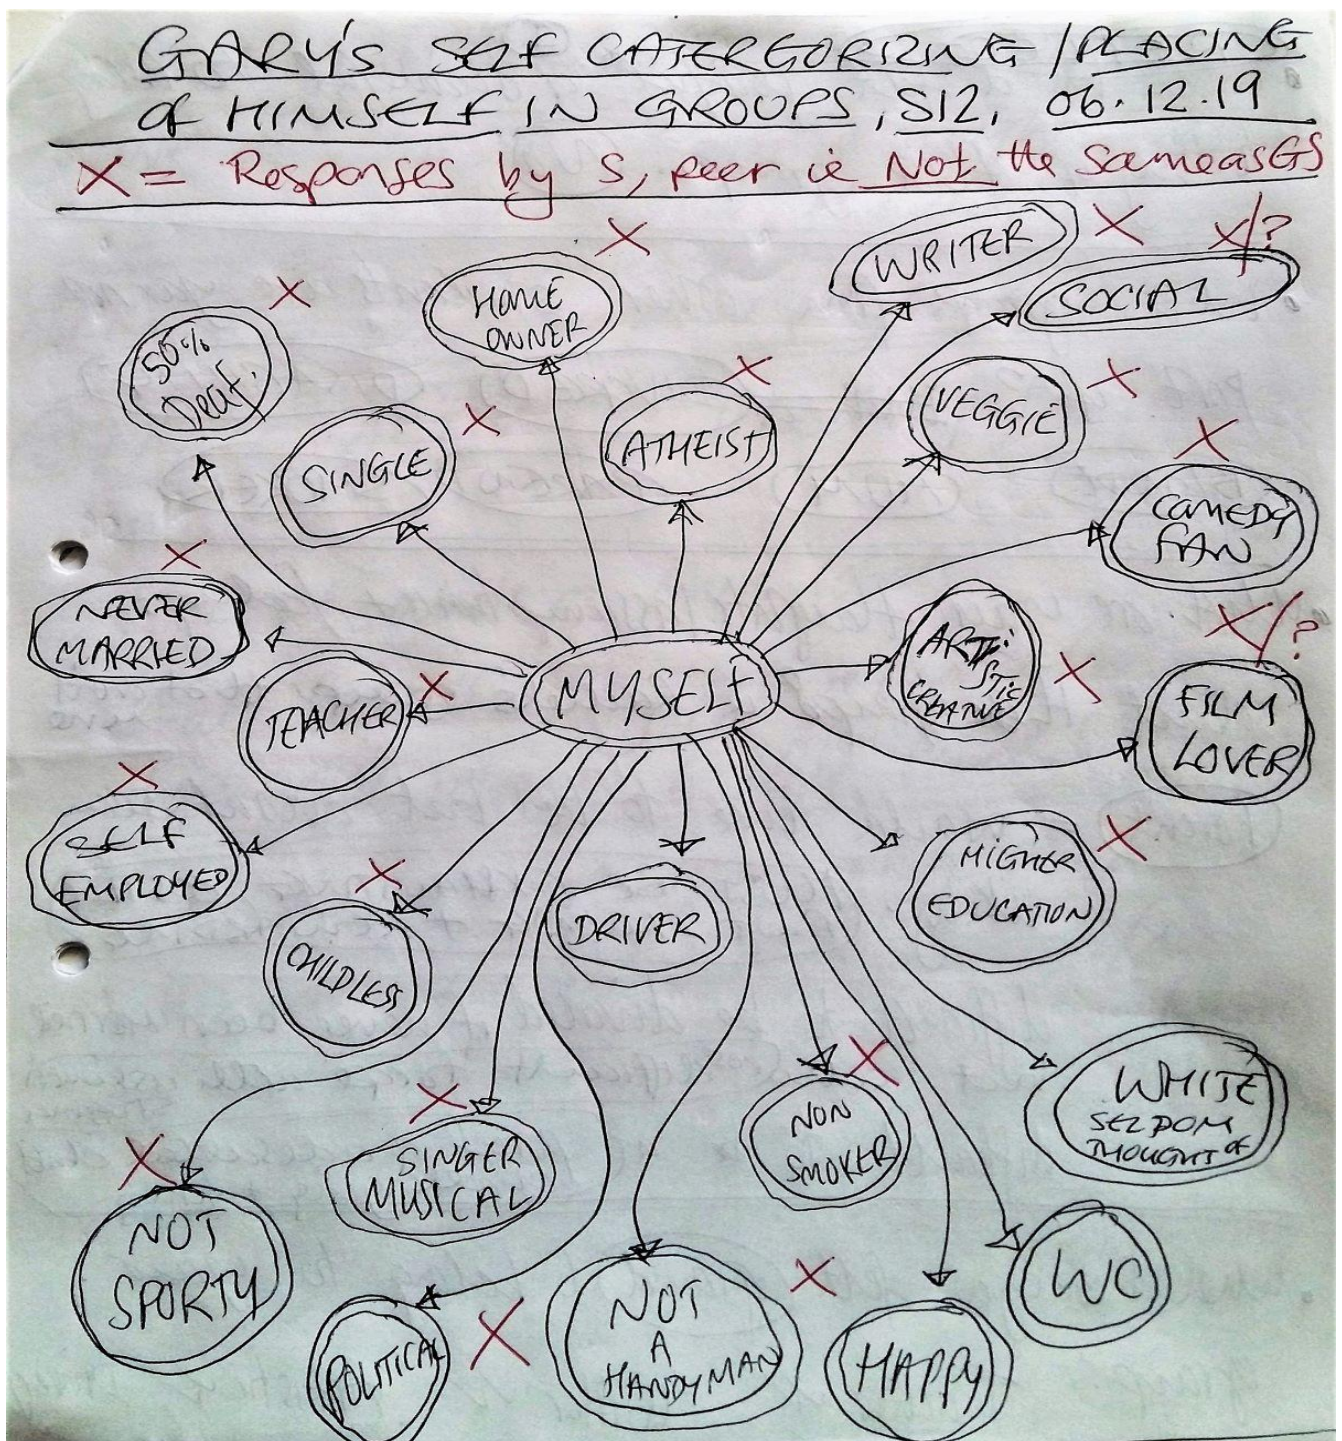 GARY'S SELF CATERGORIZING / PLACING
of HIMSELF IN GROUPS, S12, 06.12.19
X = Responses by S, peer ie Not the same as GS
X
WRITER
X
X/?
SOCIAL
X
HOME
OWNER
X
50%
Deaf.
X
SINGLE
X
ATHEIST
X
VEGGIE
X
COMEDY
FAN
X
NEVER
MARRIED
X
TEACHER
MYSELF
ARTI
STIC
CREATIVE
X
X/?
FILM
LOVER
X
SELF
EMPLOYED
X
CHILDLESS
DRIVER
X
HIGHER
EDUCATION
X
NOT
SPORTY
X
SINGER
MUSICAL
X
NON
SMOKER
WHITE
SELDOM
THOUGHT OF
POLITICAL
X
NOT
A
HANDYMAN
X
HAPPY
WC